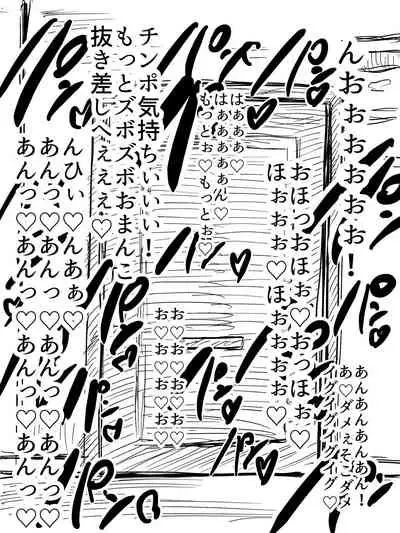 んおぉおぉおぉお！
おほっおほぉ♡おっほぉ♡
ほぉぉぉ♡ほぉぉぉお♡
はぁぁぁ♡
はぁぁぁぁん♡
もっとぉ♡もっとぉ♡
チンポ気持ちいいい！
もっとズボズボおまんこ
抜き差しへぇぇぇ♡
んひぃ♡んあぁ♡
あんっ♡あんっ♡あんっ♡あんっ♡
あんっ♡あんっ♡あんっ♡あんっ♡
お♡お♡お♡お♡お♡
お♡お♡お♡お♡お♡
あんあんあんあん！
あ♡ダメぇそこダメ
イグイグイグイグ♡
パン
パン♡
パン♡
パン♡
パン♡
パン♡
パン♡
パン♡
パン♡
パン♡